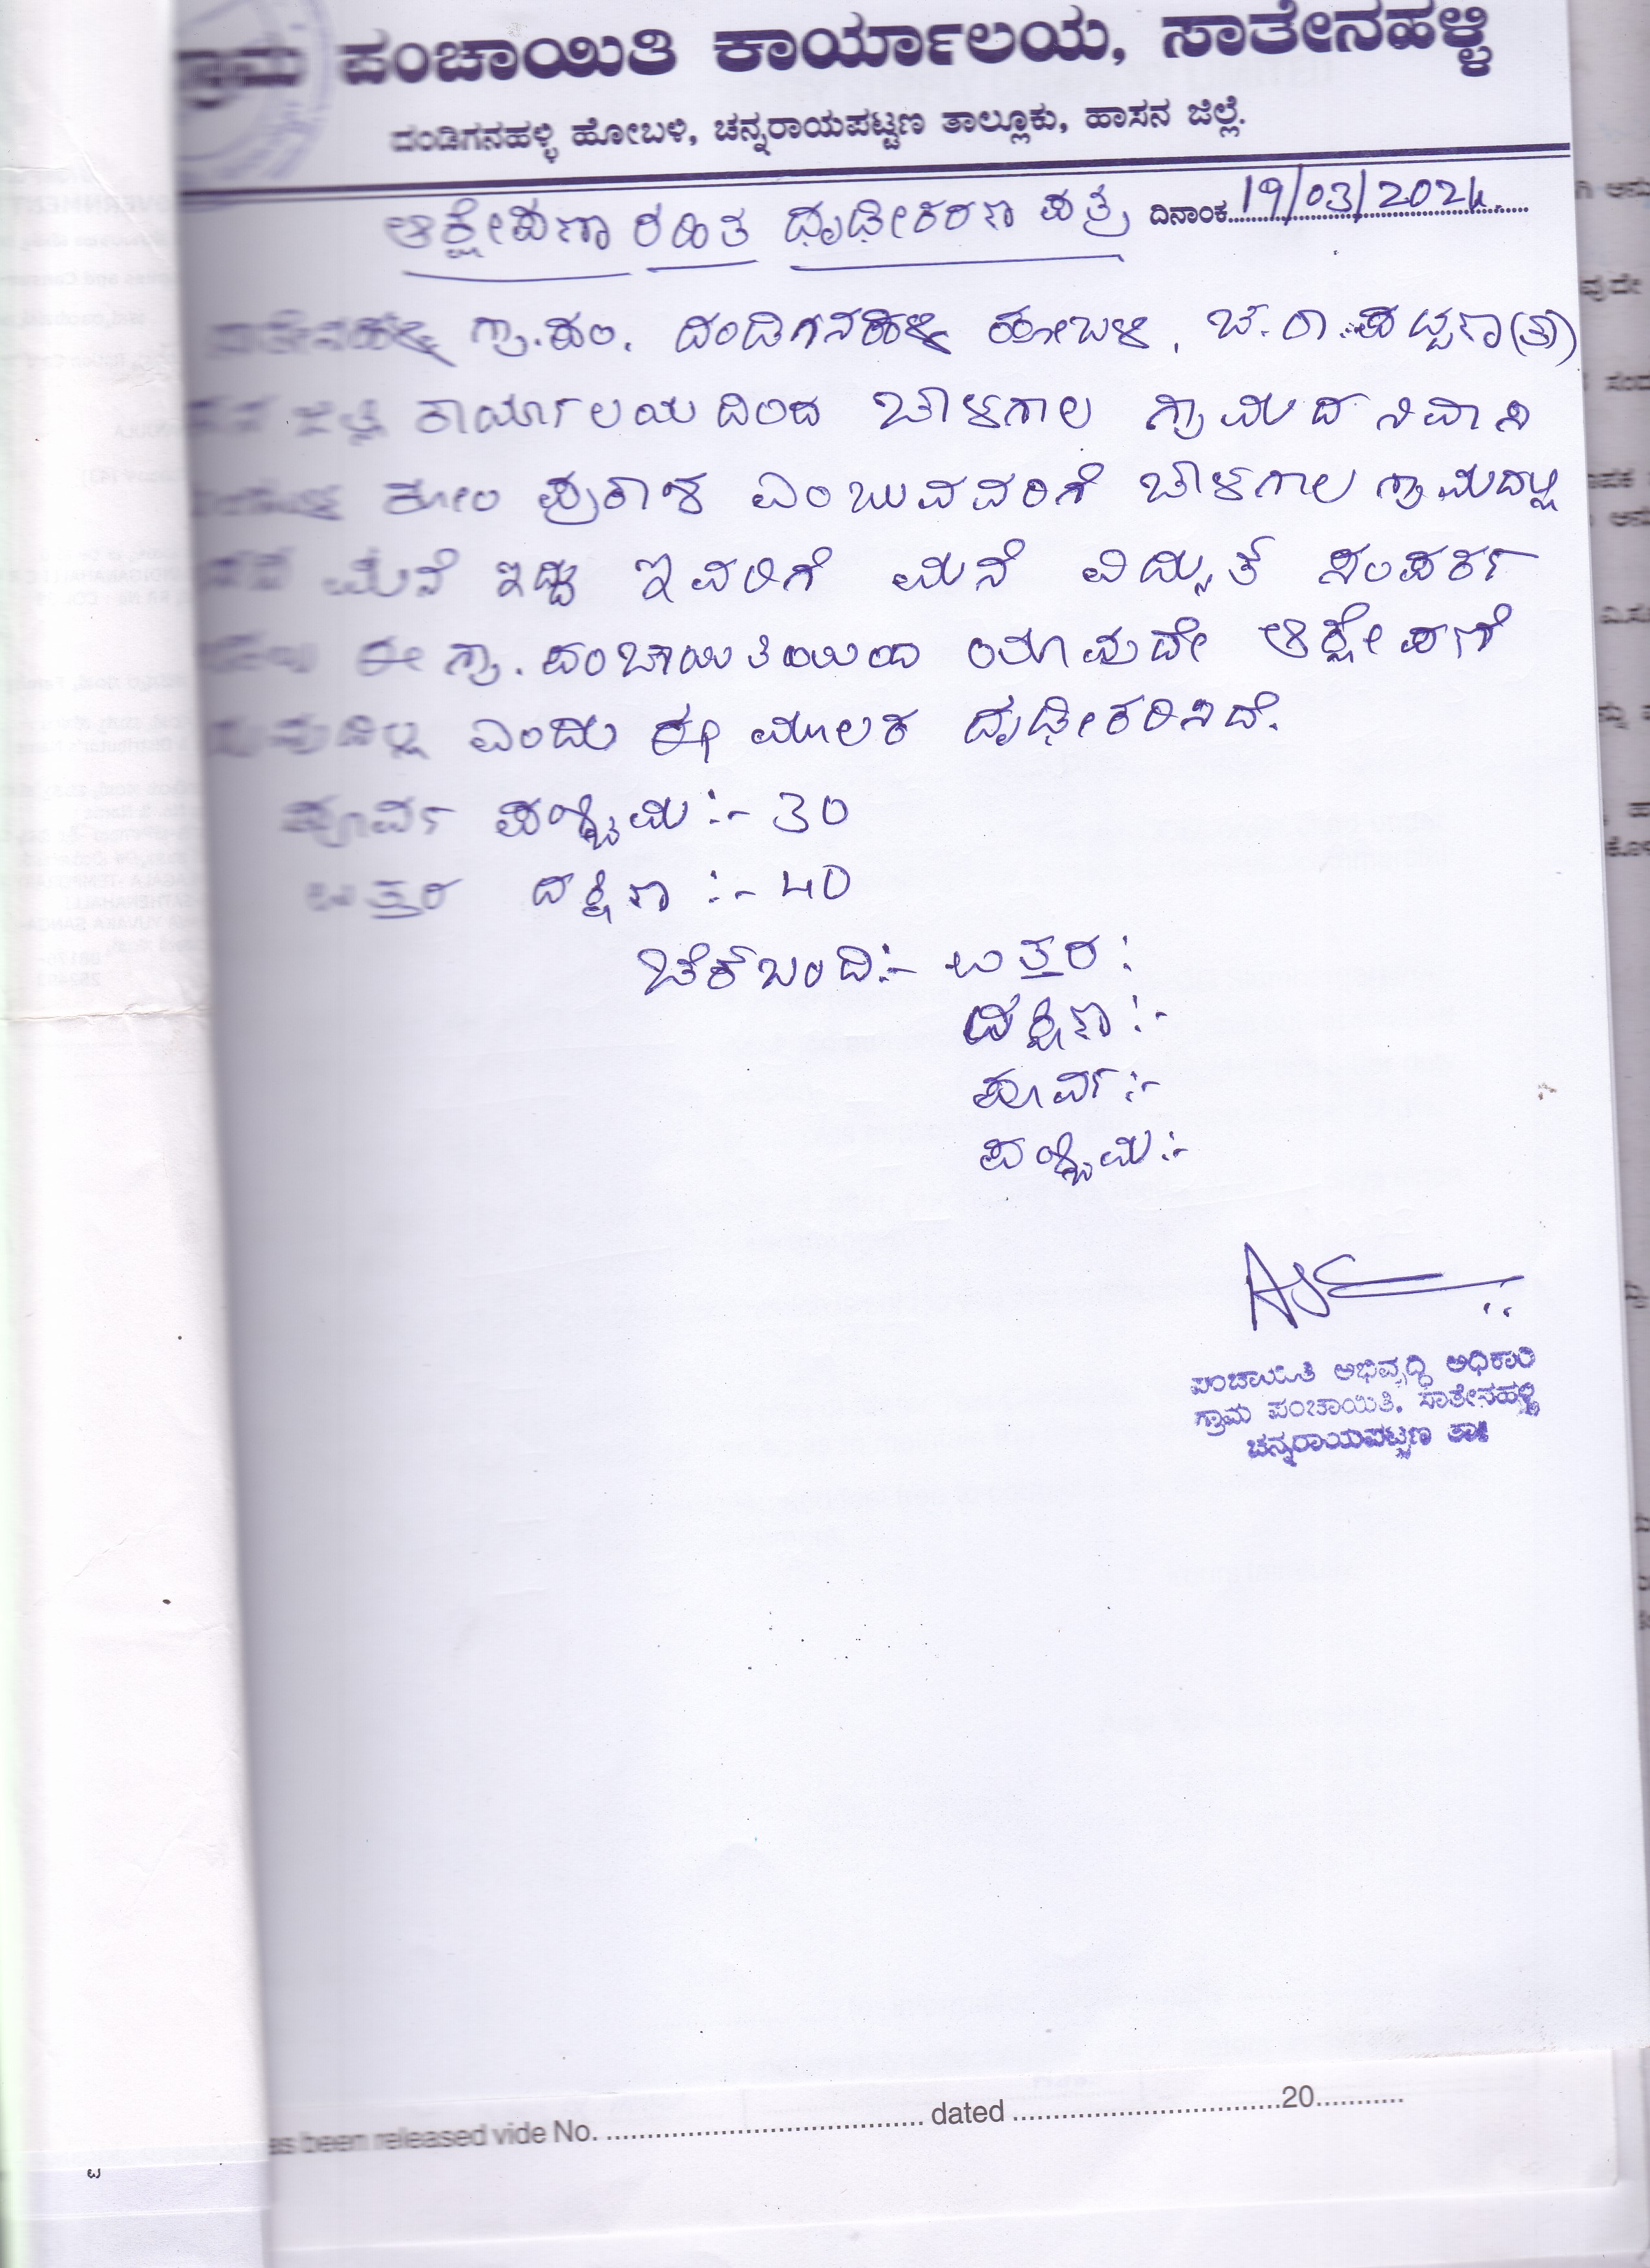 ಗ್ರಾಮ ಪಂಚಾಯಿತಿ ಕಾರ್ಯಾಲಯ, ಸಾತೇನಹಳ್ಳಿ
ದಂಡಿಗನಹಳ್ಳಿ ಹೋಬಳಿ, ಚನ್ನರಾಯಪಟ್ಟಣ ತಾಲ್ಲೂಕು, ಹಾಸನ ಜಿಲ್ಲೆ.
ದಿನಾಂಕ 19/03/2024
ಆಕ್ಷೇಪಣಾ ರಹಿತ ಧೃಢೀಕರಣ ಪತ್ರ
ಸಾತೇನಹಳ್ಳಿ ಗ್ರಾ.ಪಂ. ದಂಡಿಗನಹಳ್ಳಿ ಹೋಬಳಿ, ಚ.ರಾ.ಪಟ್ಟಣ(ತಾ)
ಜಿಲ್ಲೆ ಕಾರ್ಯಾಲಯದಿಂದ ಚೌಳಗಾಲ ಗ್ರಾಮದ ನಿವಾಸಿ
ಎಂಬುವವರಿಗೆ ಚೌಳಗಾಲ ಗ್ರಾಮದಲ್ಲಿ
ಮನೆ ಇದ್ದು ಇವರಿಗೆ ಮನೆ ವಿದ್ಯುತ್ ಸಂಪರ್ಕ
ಈ ಗ್ರಾ. ಪಂಚಾಯಿತಿಯಿಂದ ಯಾವುದೇ ಆಕ್ಷೇಪಣೆ
ಎಂದು ಈ ಮೂಲಕ ದೃಢೀಕರಿಸಿದೆ.
ಪೂರ್ವ ಪಶ್ಚಿಮ :- 30
ಉತ್ತರ ದಕ್ಷಿಣ :- 40
ಚೆಕ್‌ಬಂದಿ:- ಉತ್ತರ :
ದಕ್ಷಿಣ :-
ಪೂರ್ವ :-
ಪಶ್ಚಿಮ :-
ಪಂಚಾಯಿತಿ ಅಭಿವೃದ್ಧಿ ಅಧಿಕಾರಿ
ಗ್ರಾಮ ಪಂಚಾಯಿತಿ, ಸಾತೇನಹಳ್ಳಿ
ಚನ್ನರಾಯಪಟ್ಟಣ ತಾ||
as been released vide No. ........................................ dated .................................20...........